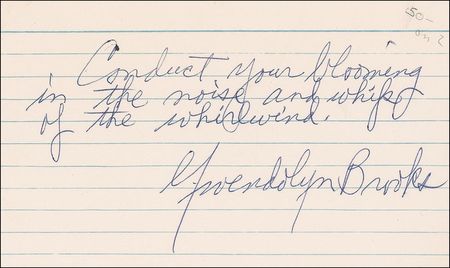 50-
on 2
Conduct your blooming
in the noise and whip
of the whirlwind.
Gwendolyn Brooks